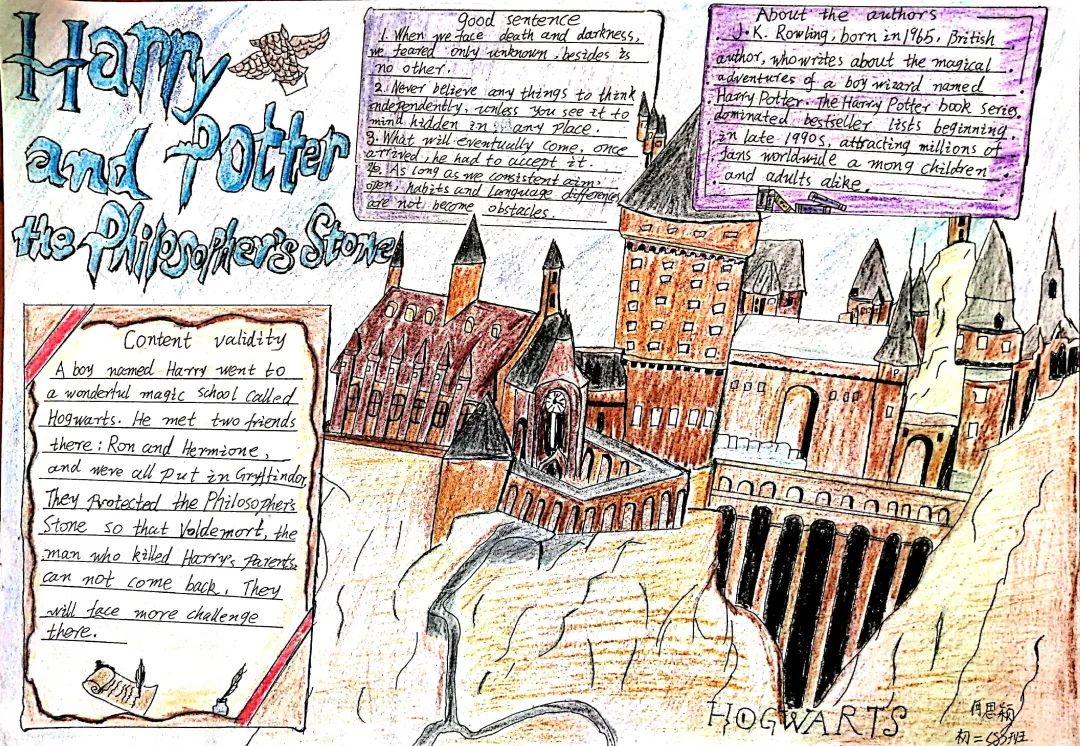 Harry
and Potter
the Philosopher's Stone
good sentence
1. When we face death and darkness,
we feared only unknown, besides is
no other.
2. Never believe any things to think
independently, unless you see it to
mind hidden in any place.
3. What will eventually come, once
arrived, he had to accept it.
As long as we consistent aim,
open, habits and language differences
are not become obstacles
About the authors
J.K. Rowling, born in 1965, British
author, who writes about the magical
adventures of a boy wizard named
Harry Potter. The Harry Potter book series,
dominated bestseller lists beginning
in late 1990s, attracting millions of
fans worldwide a mong children
and adults alike.
Content validity
A boy named Harry went to
a wonderful magic school called
Hogwarts. He met two friends
there: Ron and Hermione,
and were all put in Gryffindor.
They protected the Philosopher's
Stone so that Voldemort, the
man who killed Harry's parents,
can not come back. They
will face more challenge
there.
HOGWARTS
何思颖
初二 班